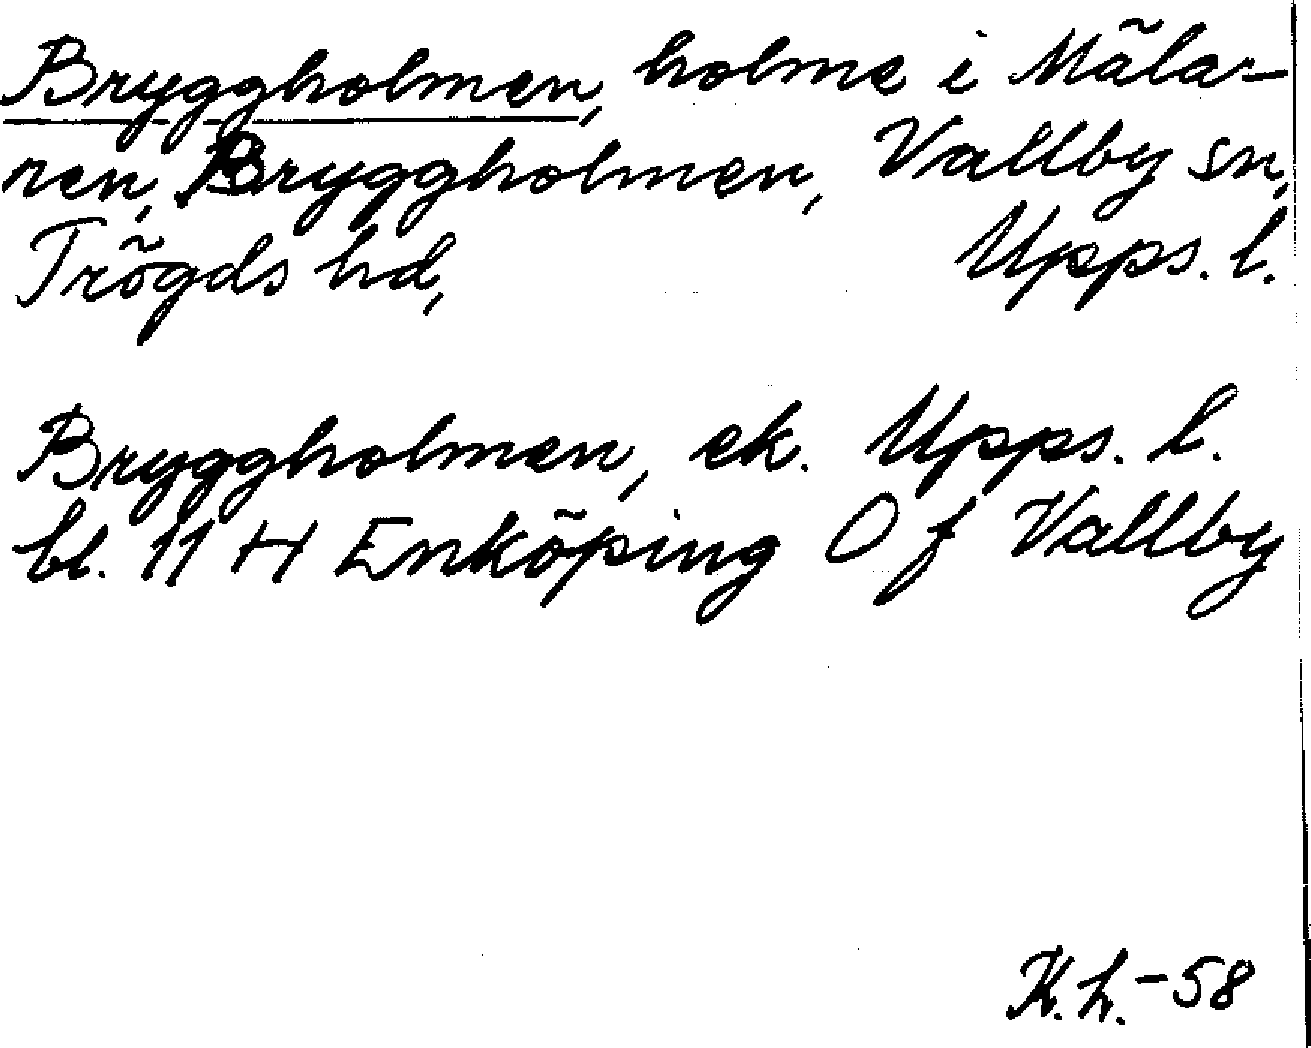 Bryggholmen, holme i Mäla-
ren, Bryggholmen, Vallby sn,
Trögds hd, Upps. l.
Bryggholmen, ek. Upps. l.
bl. 11 H Enköping O f Vallby
K.h.-58